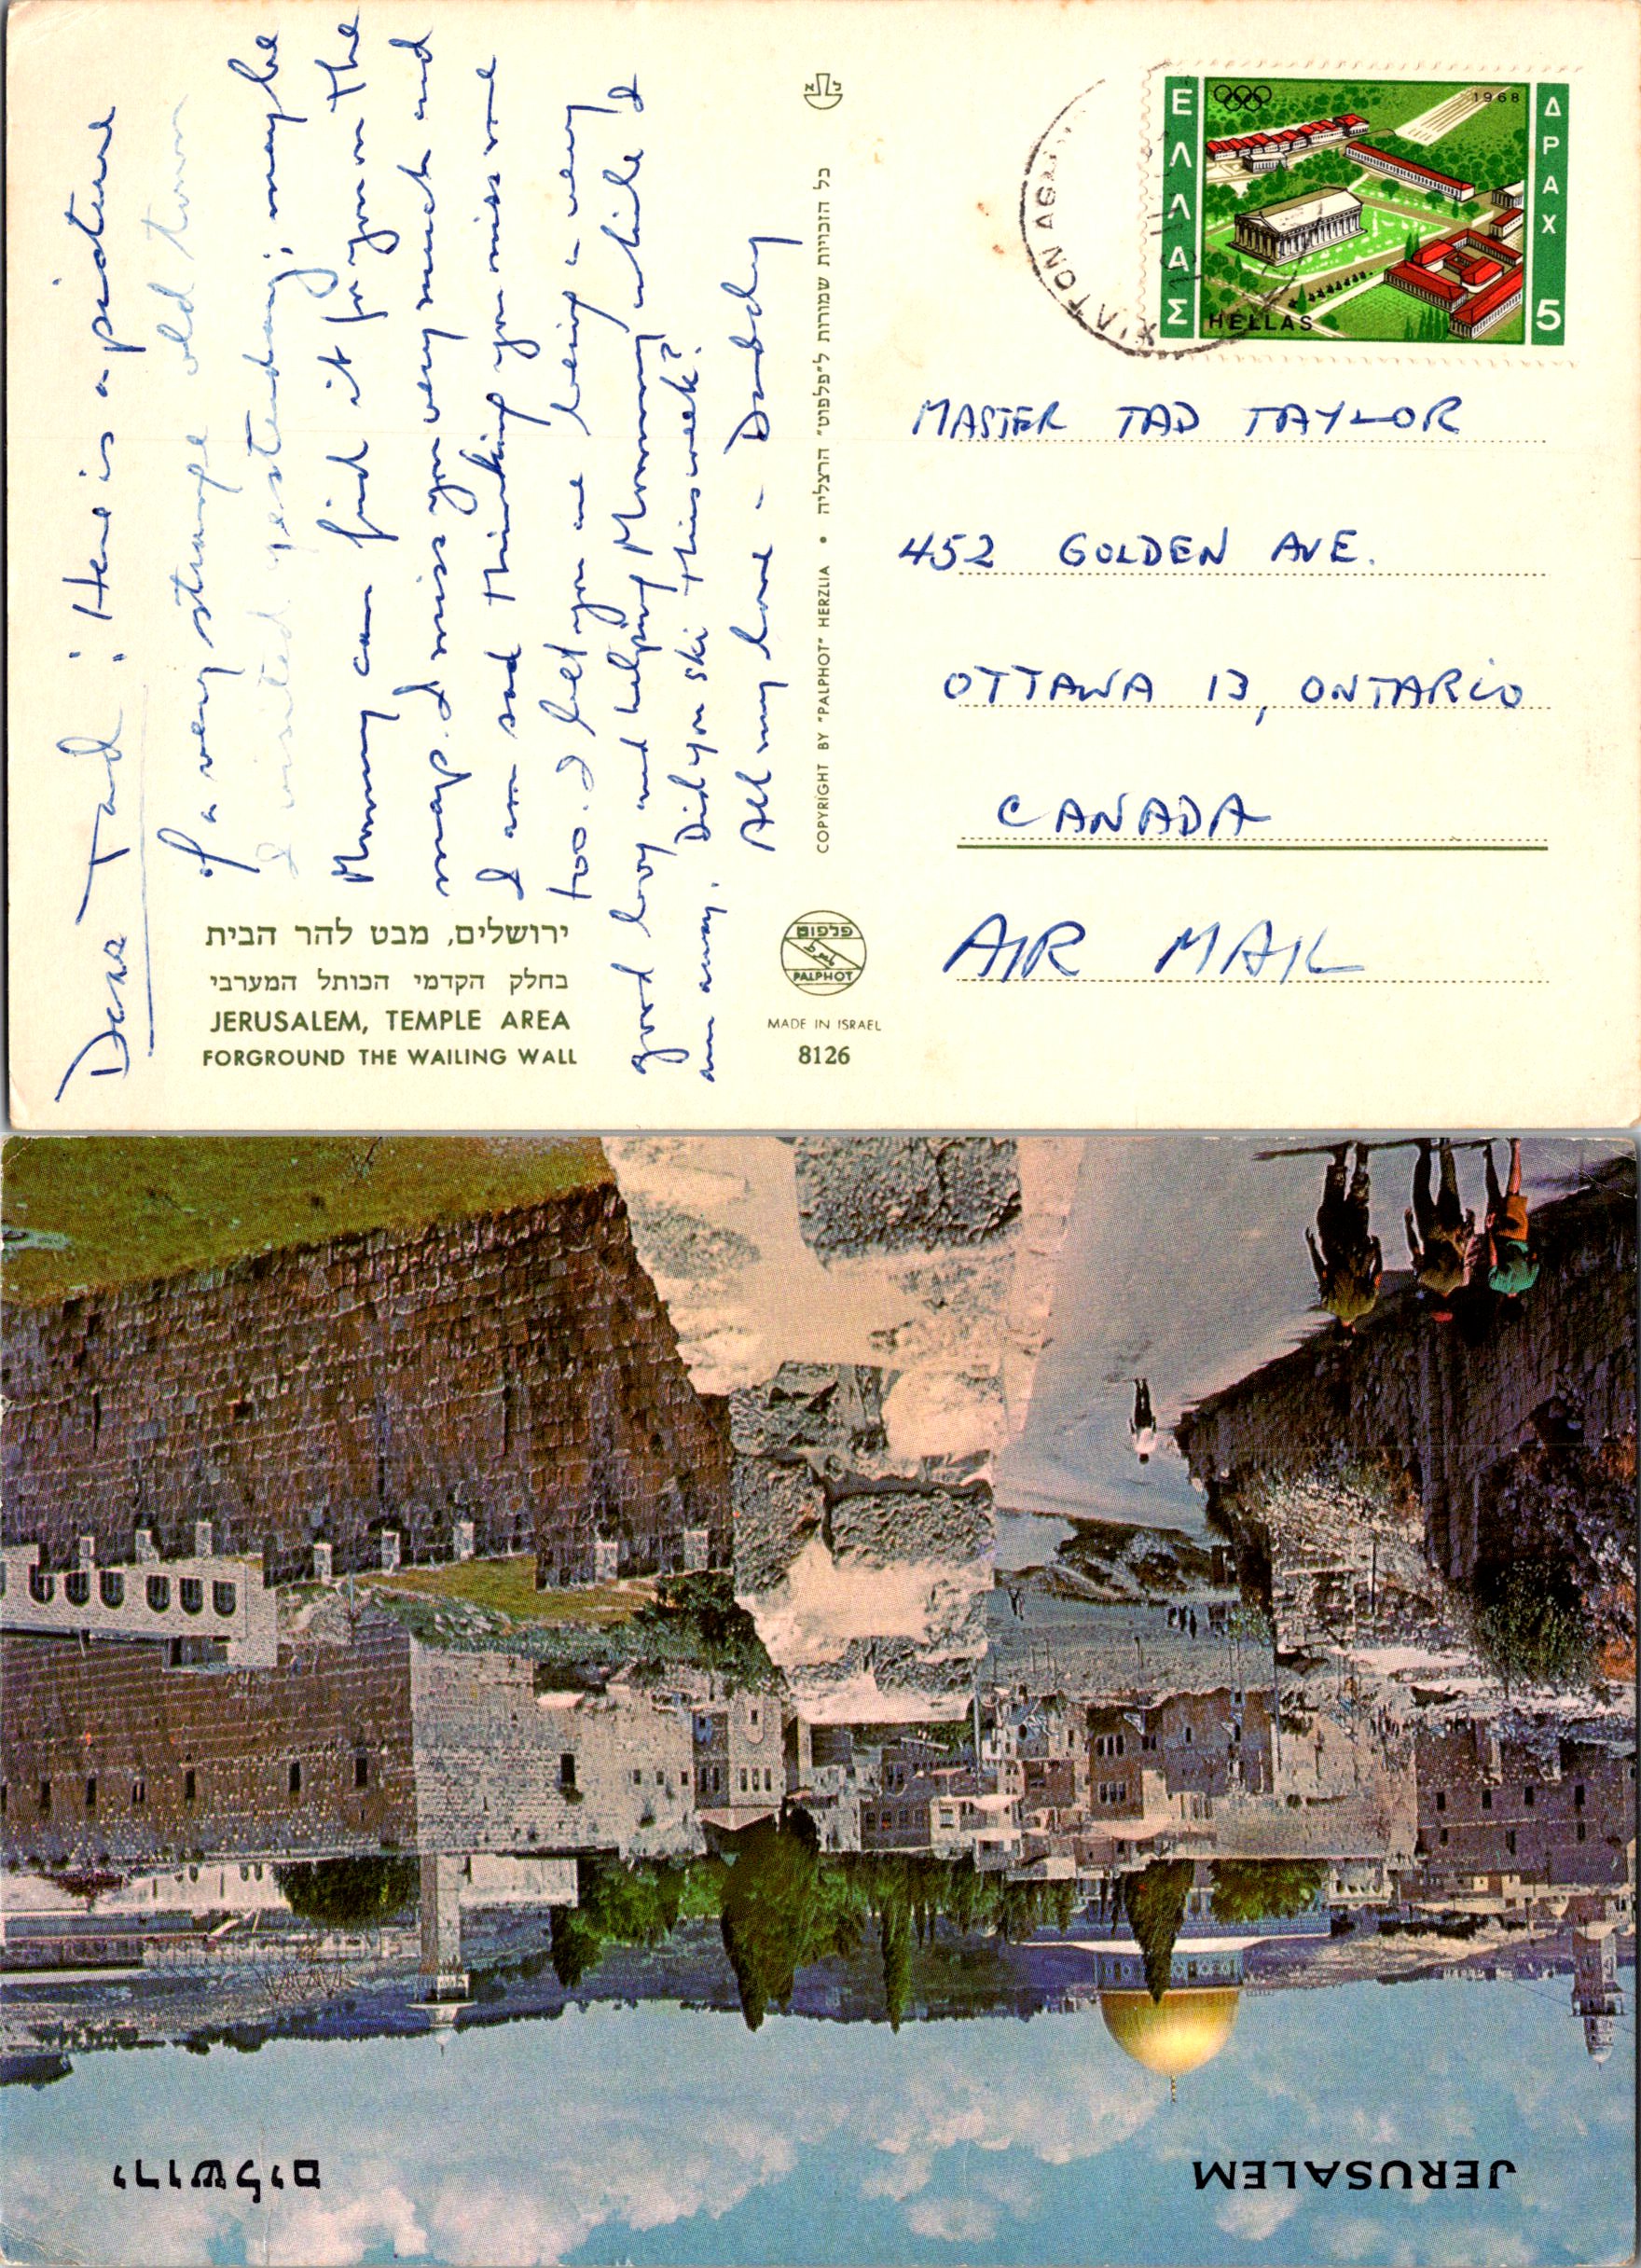 Dear Tad: Here is a picture
of a very strange old town
I visited yesterday; maybe
Mommy can find it for you on the
map. I miss you very much and
I am sad thinking you miss me
too. I bet you are being a very
good boy and helping Mommy while I
am away. Did you ski this week?
All my love - Daddy
ירושלים, מבט להר הבית
בחלק הקדמי הכותל המערבי
JERUSALEM, TEMPLE AREA
FORGROUND THE WAILING WALL
COPYRIGHT BY "PALPHOT" HERZLIA • כל הזכויות שמורות ל"פלפוט" הרצליה
פלפוט
PALPHOT
MADE IN ISRAEL
8126
ΕΛΛΑΣ
1968
ΔΡΑΧ 5
HELLAS
MASTER TAD TAYLOR
452 GOLDEN AVE.
OTTAWA 13, ONTARIO
CANADA
AIR MAIL
JERUSALEM
ירושלים